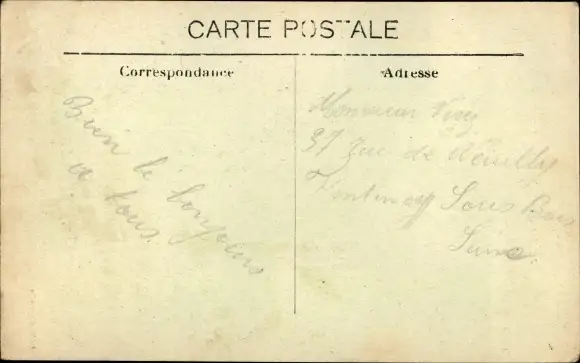 CARTE POSTALE
Correspondance
Adresse
Bien le bonjour
a tous
Monsieur
37 Rue de Neuilly
Fontenay Sous Bois
Seine